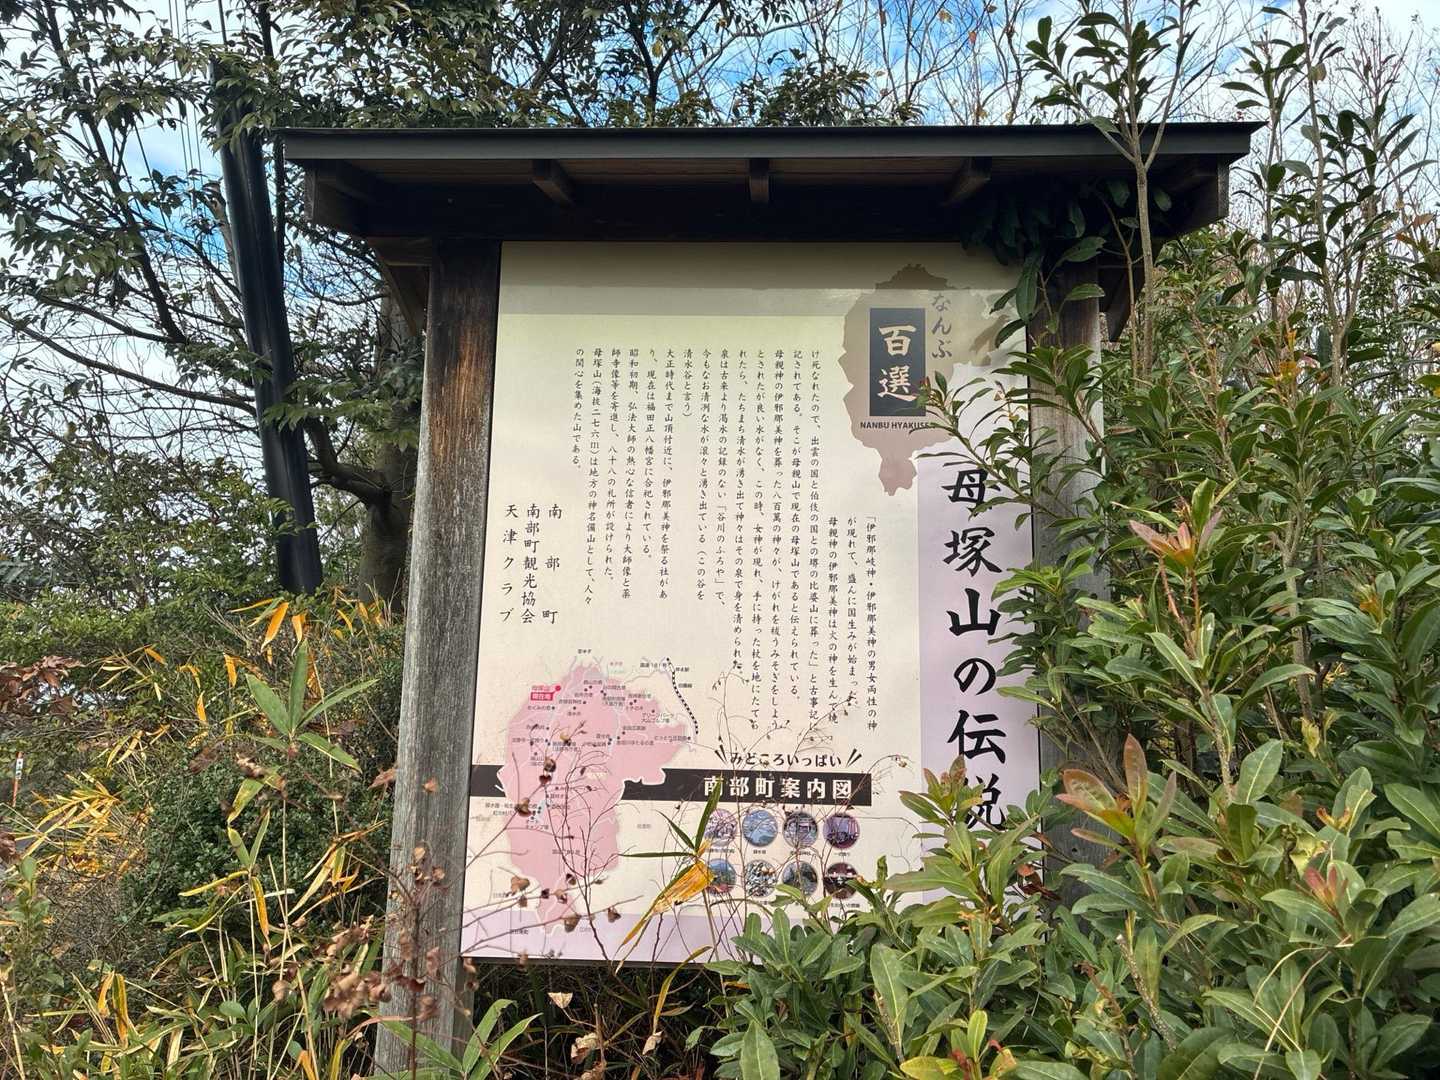 なんぶ
百選
NANBU HYAKUSE
母塚山の伝説
「伊邪那岐神・伊邪那美神の男女両性の神
が現れて、盛んに国生みが始まった。
母親神の伊邪那美神は火の神を生んで焼
け死なれたので、出雲の国と伯伎の国との堺の比婆山に葬った」と古事記に
記されてある。そこが母親山で現在の母塚山であると伝えられている。
母親神の伊邪那美神を葬った八百萬の神々が、けがれを祓うみそぎをしよう
とされたが良い水がなく、この時、女神が現れ、手に持った杖を地にたてら
れたら、たちまち清水が湧き出て神々はその泉で身を清められた。
泉は古来より渇水の記録のない「谷川のふろや」で、
今もなお清冽な水が滾々と湧き出ている（この谷を
清水谷と言う）
大正時代まで山頂付近に、伊邪那美神を祭る社があ
り、現在は福田正八幡宮に合祀されている。
昭和初期、弘法大師の熱心な信者により大師像と薬
師寺像等を寄進し、八十八の札所が設けられた。
母塚山（海抜二七六ｍ）は地方の神名備山として、人々
の関心を集めた山である。
南部町
南部町観光協会
天津クラブ
みどころいっぱい
南部町案内図
母塚山
現在地